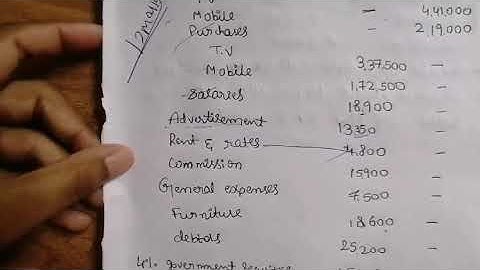 12 Marks
Mobile - 4,41,000
Purchases - 2,19,000
T.V
Mobile 3,37,500 -
Salaries 1,72,500 -
Advertisement 18,900 -
Rent & rates 13350 -
Commission 4,800 -
General expenses 15900 -
Furniture 7,500 -
debtors 18600 -
25,200 -
4%. government securities